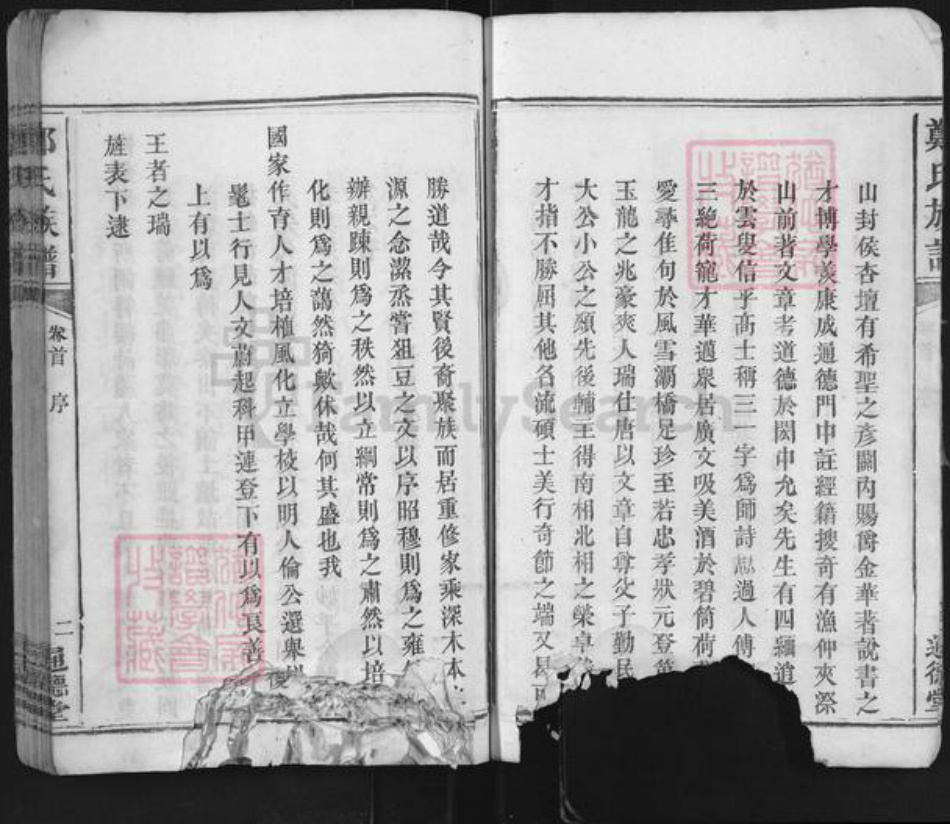 鄭氏族譜
通德堂
山封侯杏壇有希聖之彥關內賜爵金華著說書之
才博學羨康成通德門中註經籍搜奇有漁仲夾漈
山前著文章考道德於閩中允矣先生有四編逍
於雲叟信乎高士稱三一字爲師詩思過人傅
三絕荷寵才華邁衆居廣文吸美酒於碧筒荷
愛尋佳句於風雪灞橋足珍至若忠孝狀元登第
玉龍之兆豪爽人瑞仕唐以文章自尊父子勤民
大公小公之頌先後輔王得南相北相之榮卓
才指不勝屈其他名流碩士美行奇節之端又
勝道哉今其賢後裔聚族而居重修家乘深木本
源之念潔烝嘗狙豆之文以序昭穆則爲之雍
辦親踈則爲之秩然以立綱常則爲之肅然以培
化則爲之藹然猗歟休哉何其盛也我
國家作育人才培植風化立學校以明人倫公選舉以
髦士行見人文蔚起科甲連登下有以爲良善
上有以爲
王者之瑞
旌表下逮
鄭氏族譜
卷首 序
二
通德堂
FamilySearch